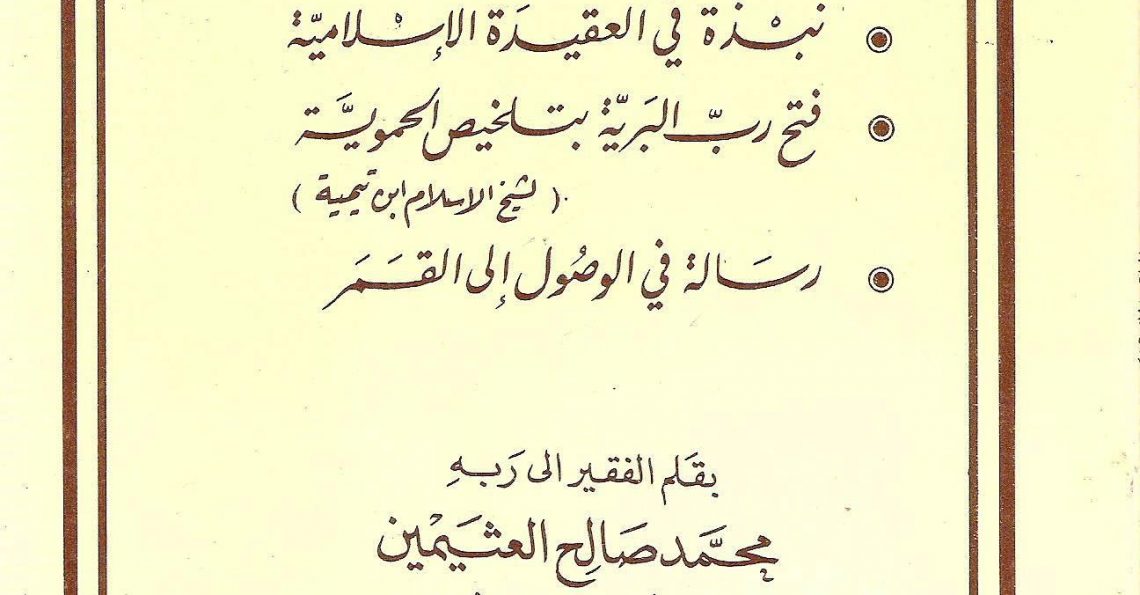 نبْذة في العقيدَة الإسْلاميّة
فتح ربّ البَريّة بتلخيص الحمويَّة
( لشيخ الاسلام ابن تيمية )
رسَالة في الوصُول إلى القَمَر
بقَلم الفقير الى رَبهِ
محمَّد صَالِح العثيَمْين